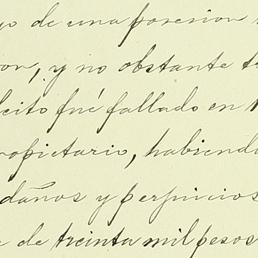 de una posesion
y no obstante
fué fallado en
habiendo
daños y perjuicios
de treinta mil pesos